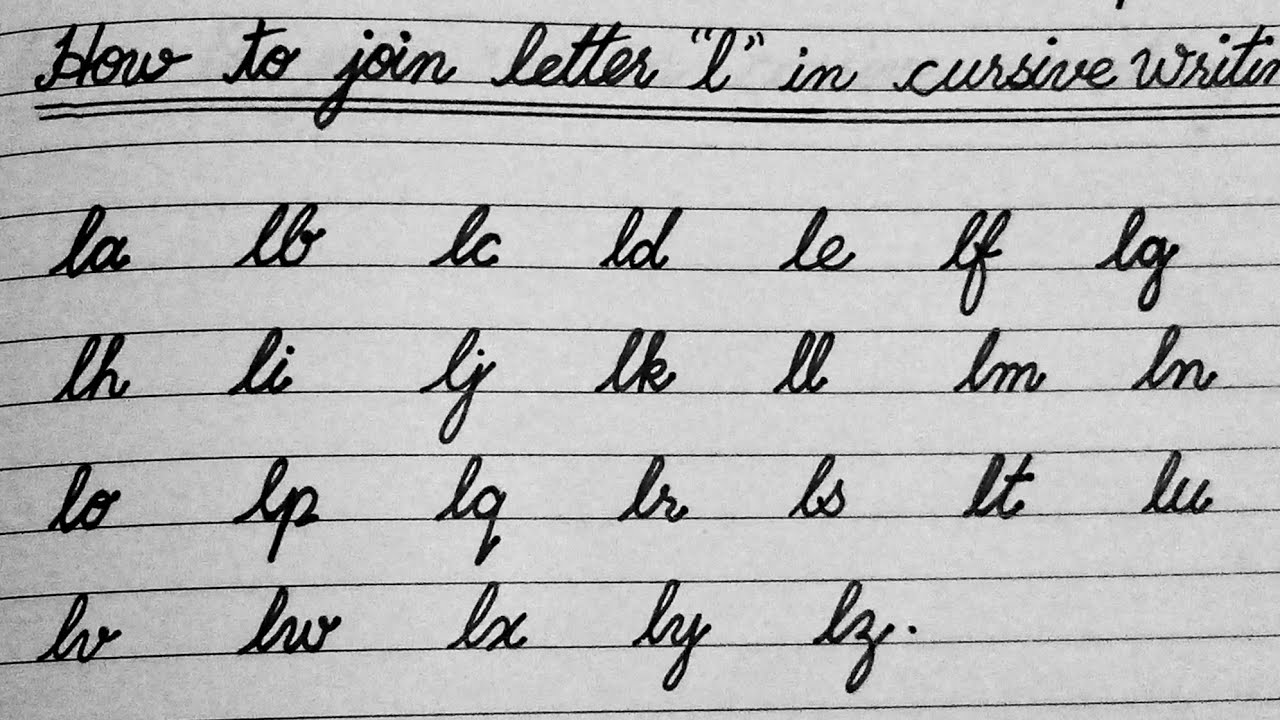 How to join letter "l" in cursive Writin
la lb lc ld le lf lg
lh li lj lk ll lm ln
lo lp lq lr ls lt lu
lv lw lx ly lz.